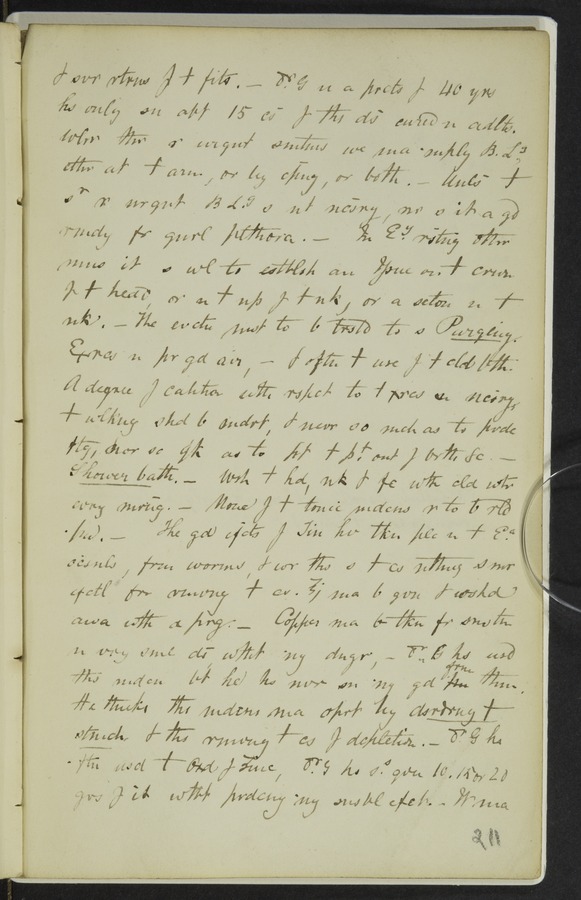 & svr rtrns J t fits. — Dr. G n a prcts J 40 yrs
hs only sn abt 15 cs J ths ds cured n adlts.
whr thr r urgnt smtms we ma mply B.L.g
ethr at t arm, or by cpng, or both. — Unls t
r urgnt B L.g s nt ncsry, nr s it a gd
rmdy fr gnrl plthora. — In E.y rsltng othr
mns it s wl to estblsh an Issue ovr t crwn
J t head, or n t np J t nk, or a seton n t
nk. — The evcts mst to b trstd to s Purging.
Exrcs n pr gd air, — & oftn t use J t cld bth.
A degree J caution with rspct to t xrcs s ncsry,
t wlking shd b modrt, & nevr so mch as to prdc
ftg, nor so qk as to pt t pt out J brth &c. —
Shower bath. — Wsh t hd, nk & fc wth cld wtr
evry mrng. — None J t tonic mdcns r to b rld
pn. — The gd efcts J Tin hv tkn plc n t E.a
ocsnd, from worms, & for ths s t cs nthng s mr
efctl for rmvng t cs. ʒj ma b gvn & wshd
awa with a prg. — Copper ma b tkn fr sm tm
n vry sml ds, wtht ny dngr, — Dr. G hs usd
ths mdcn bt he hs nvr sn ny gd from thm.
He thnks ths mdcns ma oprt by dsrdrng t
stmch & ths rmvng t cs J depletion. — Dr G hs
ftn usd t Oxd J Zinc, Dr. G hs s. gvn 10, 15 or 20
grs J it wtht prdcng ny snsbl efct. — W ma
211